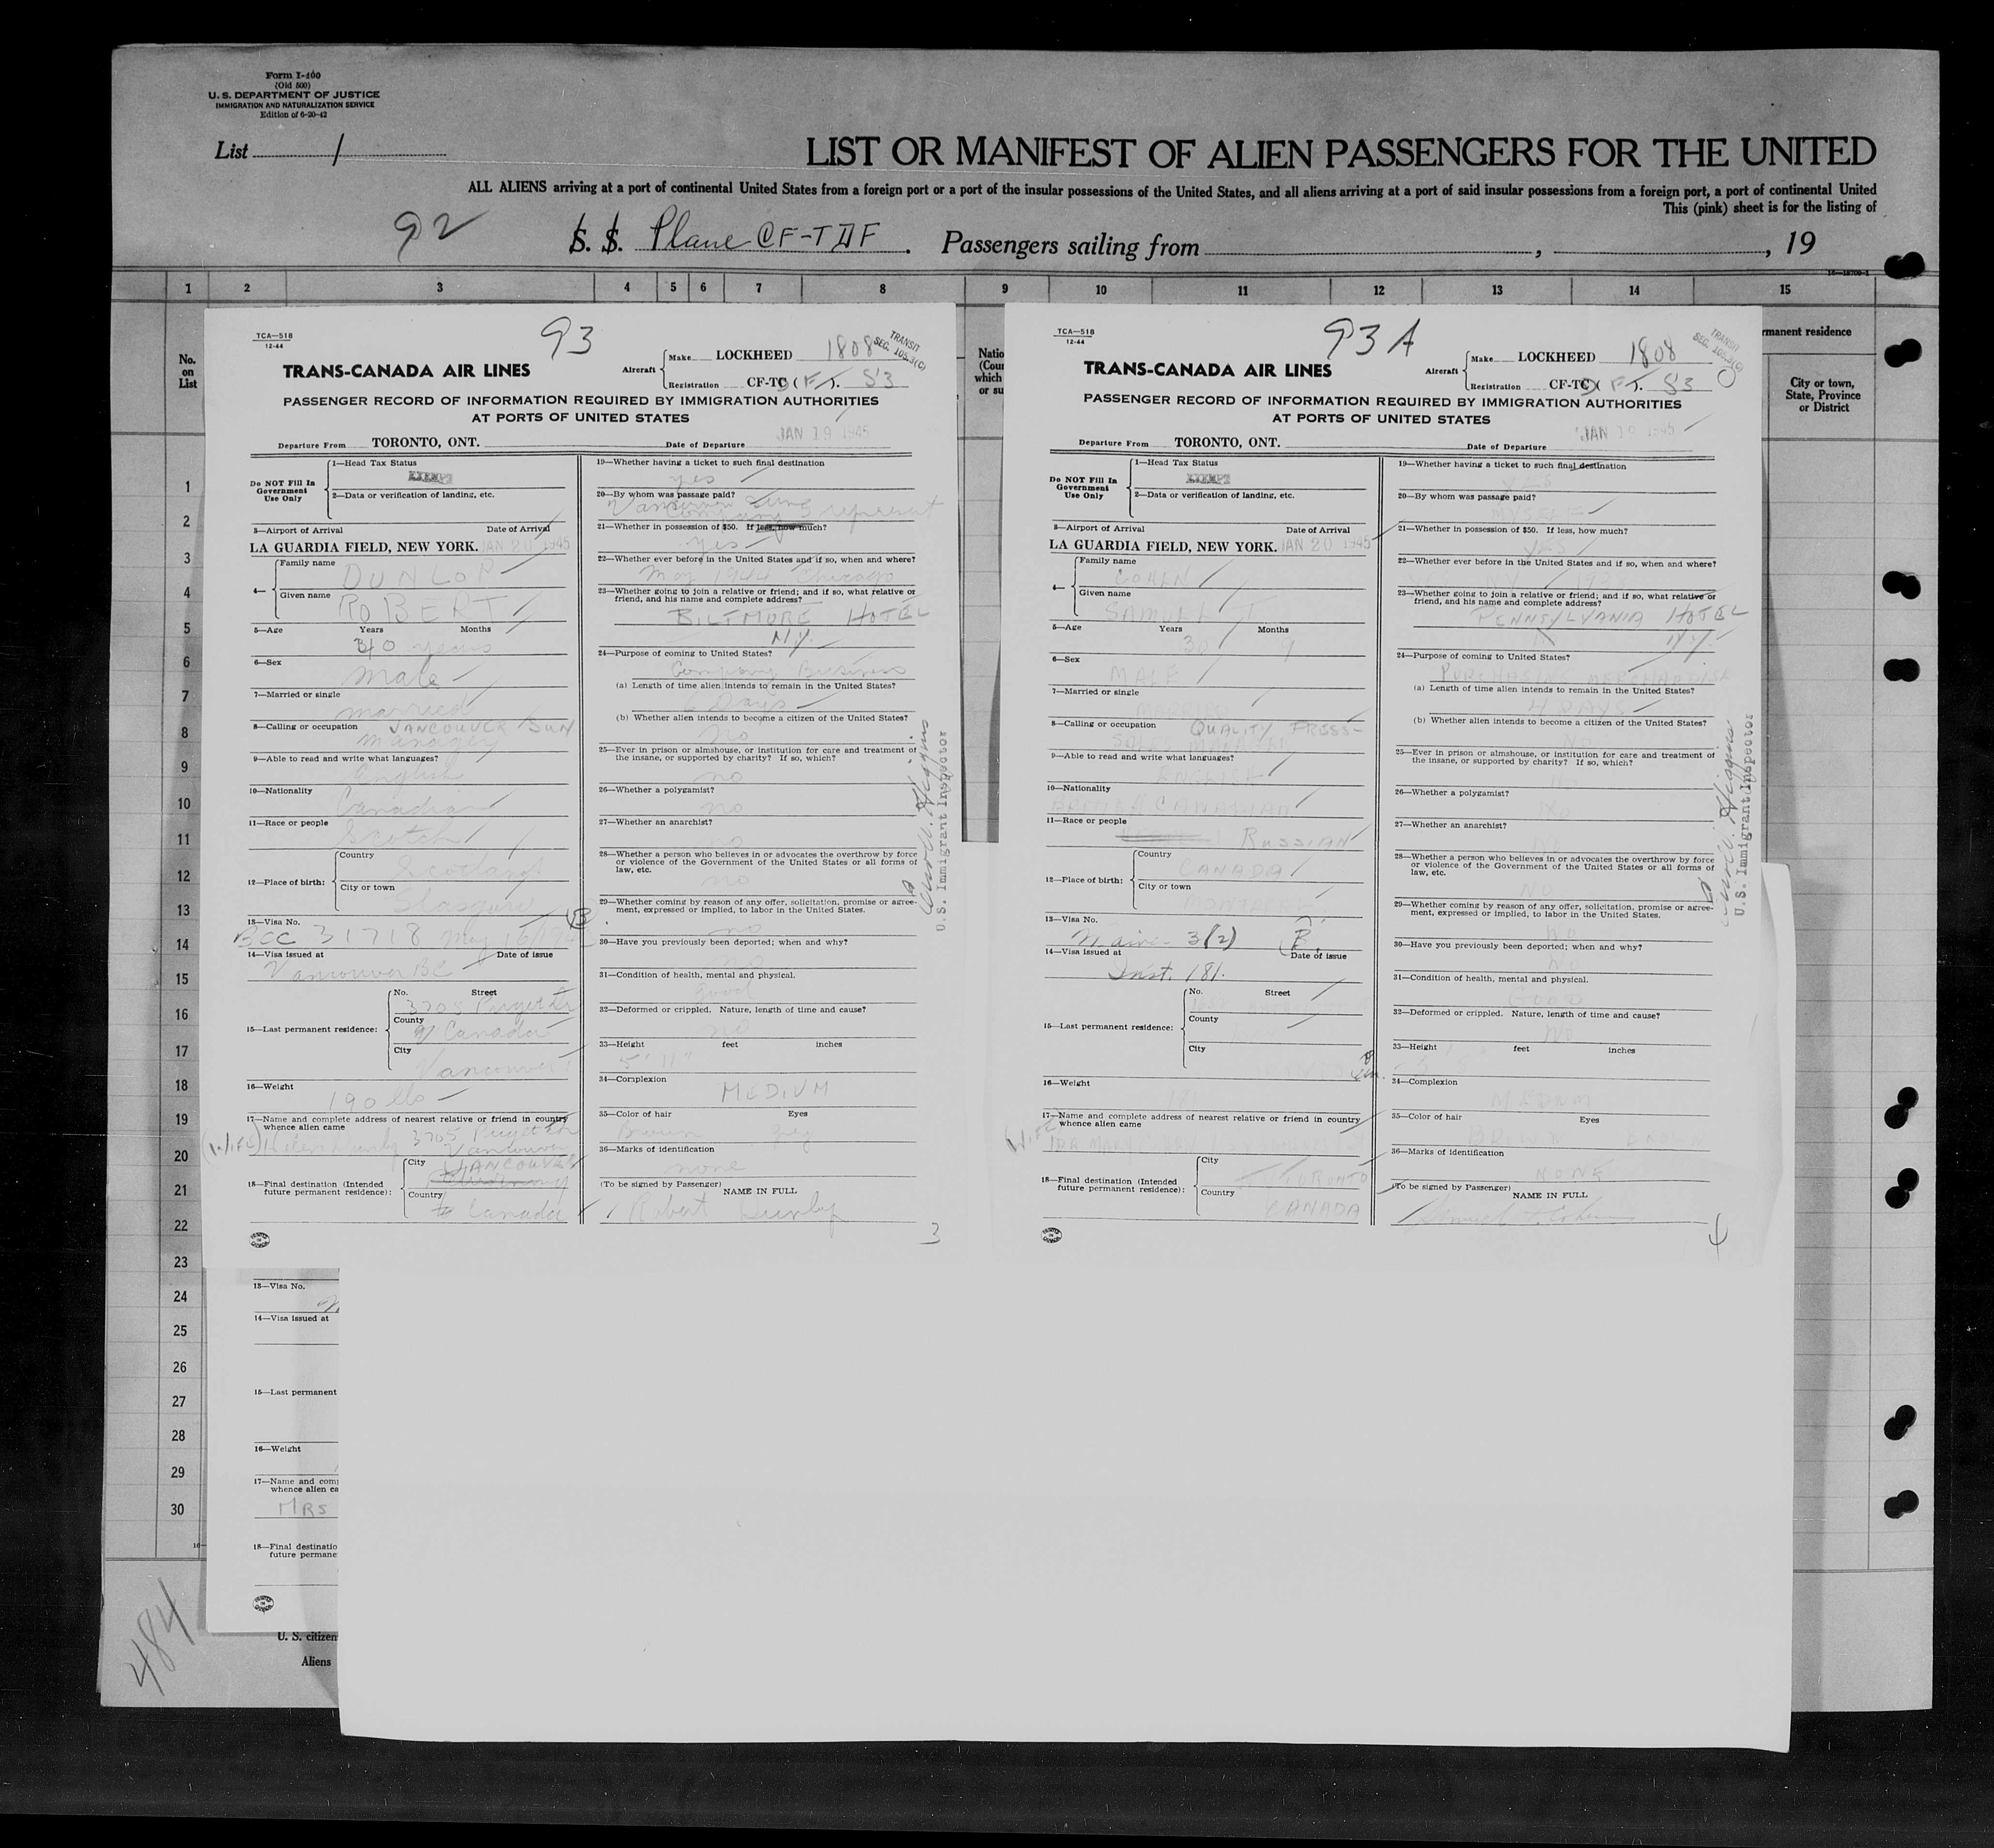 Form I-400
(Old 500)
U. S. DEPARTMENT OF JUSTICE
IMMIGRATION AND NATURALIZATION SERVICE
Edition of 6-20-42
List 1
LIST OR MANIFEST OF ALIEN PASSENGERS FOR THE UNITED
ALL ALIENS arriving at a port of continental United States from a foreign port or a port of the insular possessions of the United States, and all aliens arriving at a port of said insular possessions from a foreign port, a port of continental United
This (pink) sheet is for the listing of
92 S. S. Plane CF-TDF. Passengers sailing from , , 19
1 2 3 4 5 6 7 8 9 10 11 12 13 14 15
No.
on
List
Natio
(Coun
which
or su
rmanent residence
City or town,
State, Province
or District
1
2
3
4
5
6
7
8
9
10
11
12
13
14
15
16
17
18
19
20
21
22
23
24
25
26
27
28
29
30
TCA—518
12-44
93
TRANSIT
SEC. 105.3(C)
TRANS-CANADA AIR LINES
Aircraft
Make LOCKHEED 1808
Registration CF-TC (F T). 53
PASSENGER RECORD OF INFORMATION REQUIRED BY IMMIGRATION AUTHORITIES
AT PORTS OF UNITED STATES
Departure From TORONTO, ONT.
Date of Departure JAN 19 1945
Do NOT Fill In
Government
Use Only
1—Head Tax Status
EXEMPT
2—Data or verification of landing, etc.
3—Airport of Arrival Date of Arrival
LA GUARDIA FIELD, NEW YORK. JAN 20 1945
4— Family name
DUNLOP
Given name
ROBERT
5—Age Years Months
40 years
6—Sex
male
7—Married or single
married
8—Calling or occupation VANCOUVER SUN
manager
9—Able to read and write what languages?
English
10—Nationality
Canadian
11—Race or people
Scotch
12—Place of birth:
Country
Scotland
City or town
Glasgow
13—Visa No.
BCC 31718 May 16
14—Visa issued at Date of issue
Vancouver BC
15—Last permanent residence:
No. Street
3705 Puget Dr
County
Canada
City
Vancouver
16—Weight
190 lbs
17—Name and complete address of nearest relative or friend in country
whence alien came
(WIFE) Helen 3705 Puget Dr
Vancouver
18—Final destination (Intended
future permanent residence):
City VANCOUVER
Country
Canada
19—Whether having a ticket to such final destination
yes
20—By whom was passage paid?
Vancouver Sun
21—Whether in possession of $50. If less, how much?
yes
22—Whether ever before in the United States and if so, when and where?
May 1944 Chicago
23—Whether going to join a relative or friend; and if so, what relative or
friend, and his name and complete address?
BILTMORE HOTEL
N.Y.
24—Purpose of coming to United States?
Company Business
(a) Length of time alien intends to remain in the United States?
6 Days
(b) Whether alien intends to become a citizen of the United States?
no
25—Ever in prison or almshouse, or institution for care and treatment of
the insane, or supported by charity? If so, which?
no
26—Whether a polygamist?
no
27—Whether an anarchist?
28—Whether a person who believes in or advocates the overthrow by force
or violence of the Government of the United States or all forms of
law, etc.
no
29—Whether coming by reason of any offer, solicitation, promise or agree-
ment, expressed or implied, to labor in the United States.
no
30—Have you previously been deported; when and why?
no
31—Condition of health, mental and physical.
good
32—Deformed or crippled. Nature, length of time and cause?
no
33—Height feet inches
5' 11"
34—Complexion
MEDIUM
35—Color of hair Eyes
Brown Grey
36—Marks of identification
none
(To be signed by Passenger) NAME IN FULL
Robert Dunlop
3
U.S. Immigrant Inspector
TCA—518
12-44
93 A
TRANSIT
SEC. 105.3(C)
TRANS-CANADA AIR LINES
Aircraft
Make LOCKHEED 1808
Registration CF-TC( F T. 53
PASSENGER RECORD OF INFORMATION REQUIRED BY IMMIGRATION AUTHORITIES
AT PORTS OF UNITED STATES
Departure From TORONTO, ONT.
Date of Departure JAN 19 1945
Do NOT Fill In
Government
Use Only
1—Head Tax Status
EXEMPT
2—Data or verification of landing, etc.
3—Airport of Arrival Date of Arrival
LA GUARDIA FIELD, NEW YORK. JAN 20 1945
4— Family name
COHEN
Given name
SAMUEL T
5—Age Years Months
30 9
6—Sex
MALE
7—Married or single
MARRIED
8—Calling or occupation QUALITY PRESS-
9—Able to read and write what languages?
ENGLISH
10—Nationality
BRITISH CANADIAN
11—Race or people
RUSSIAN
12—Place of birth:
Country
CANADA
City or town
MONTREAL
13—Visa No.
Waiver 3(2) B.
14—Visa issued at Date of issue
Inst. 181.
15—Last permanent residence:
No. Street
County
City
16—Weight
181
17—Name and complete address of nearest relative or friend in country
whence alien came
(WIFE)
18—Final destination (Intended
future permanent residence):
City
TORONTO
Country
CANADA
19—Whether having a ticket to such final destination
YES
20—By whom was passage paid?
MYSELF
21—Whether in possession of $50. If less, how much?
YES
22—Whether ever before in the United States and if so, when and where?
23—Whether going to join a relative or friend; and if so, what relative or
friend, and his name and complete address?
PENNSYLVANIA HOTEL
N.Y.
24—Purpose of coming to United States?
PURCHASING MERCHANDISE
(a) Length of time alien intends to remain in the United States?
4 DAYS
(b) Whether alien intends to become a citizen of the United States?
No
25—Ever in prison or almshouse, or institution for care and treatment of
the insane, or supported by charity? If so, which?
No
26—Whether a polygamist?
No
27—Whether an anarchist?
No
28—Whether a person who believes in or advocates the overthrow by force
or violence of the Government of the United States or all forms of
law, etc.
NO
29—Whether coming by reason of any offer, solicitation, promise or agree-
ment, expressed or implied, to labor in the United States.
No
30—Have you previously been deported; when and why?
No
31—Condition of health, mental and physical.
GOOD
32—Deformed or crippled. Nature, length of time and cause?
No
33—Height feet inches
34—Complexion
MEDIUM
35—Color of hair Eyes
BROWN BROWN
36—Marks of identification
NONE
(To be signed by Passenger) NAME IN FULL
Samuel T. Cohen
4
U.S. Immigrant Inspector
13—Visa No.
14—Visa issued at
15—Last permanent
16—Weight
17—Name and comp
whence alien ca
MRS
18—Final destinatio
future permane
U. S. citizen
Aliens
484